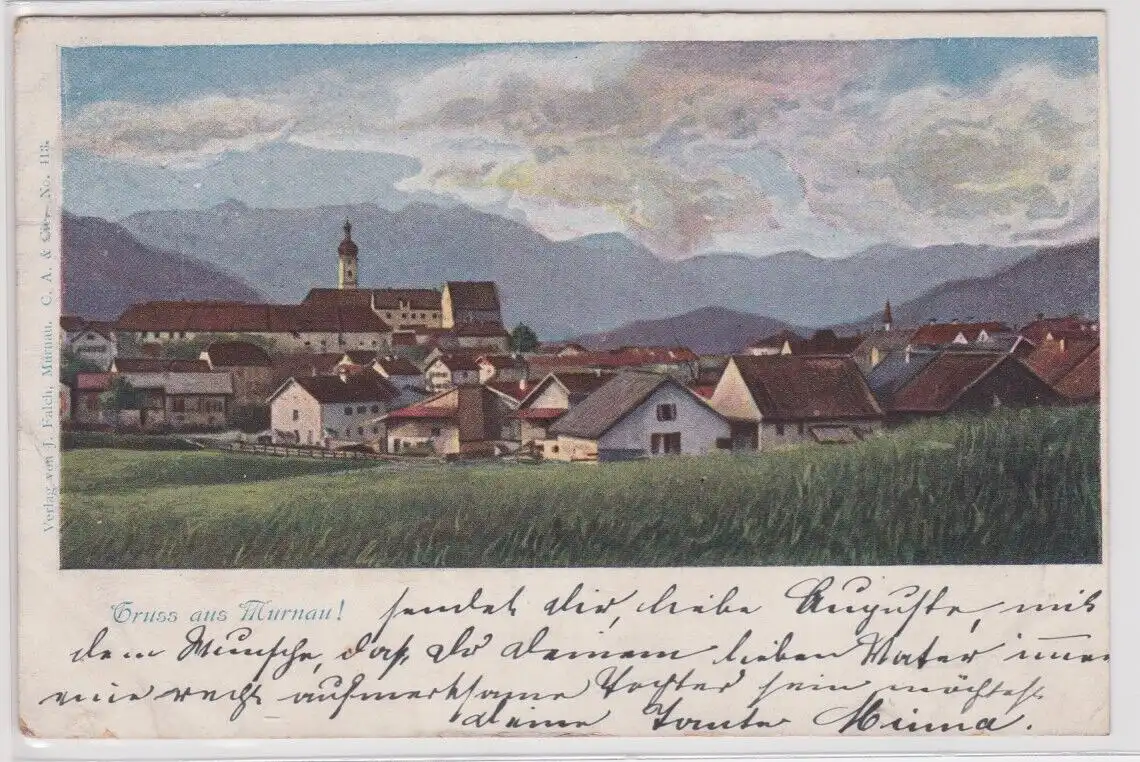 Verlag von J. Falch, Murnau. C. A. & Cie. No. 113.
Gruss aus Murnau! sendet dir, liebe Auguste, mit
dem Wunsche, daß du deinem lieben Vater immer
eine recht aufmerksame Tochter sein möchtest
deine Tante Minna.